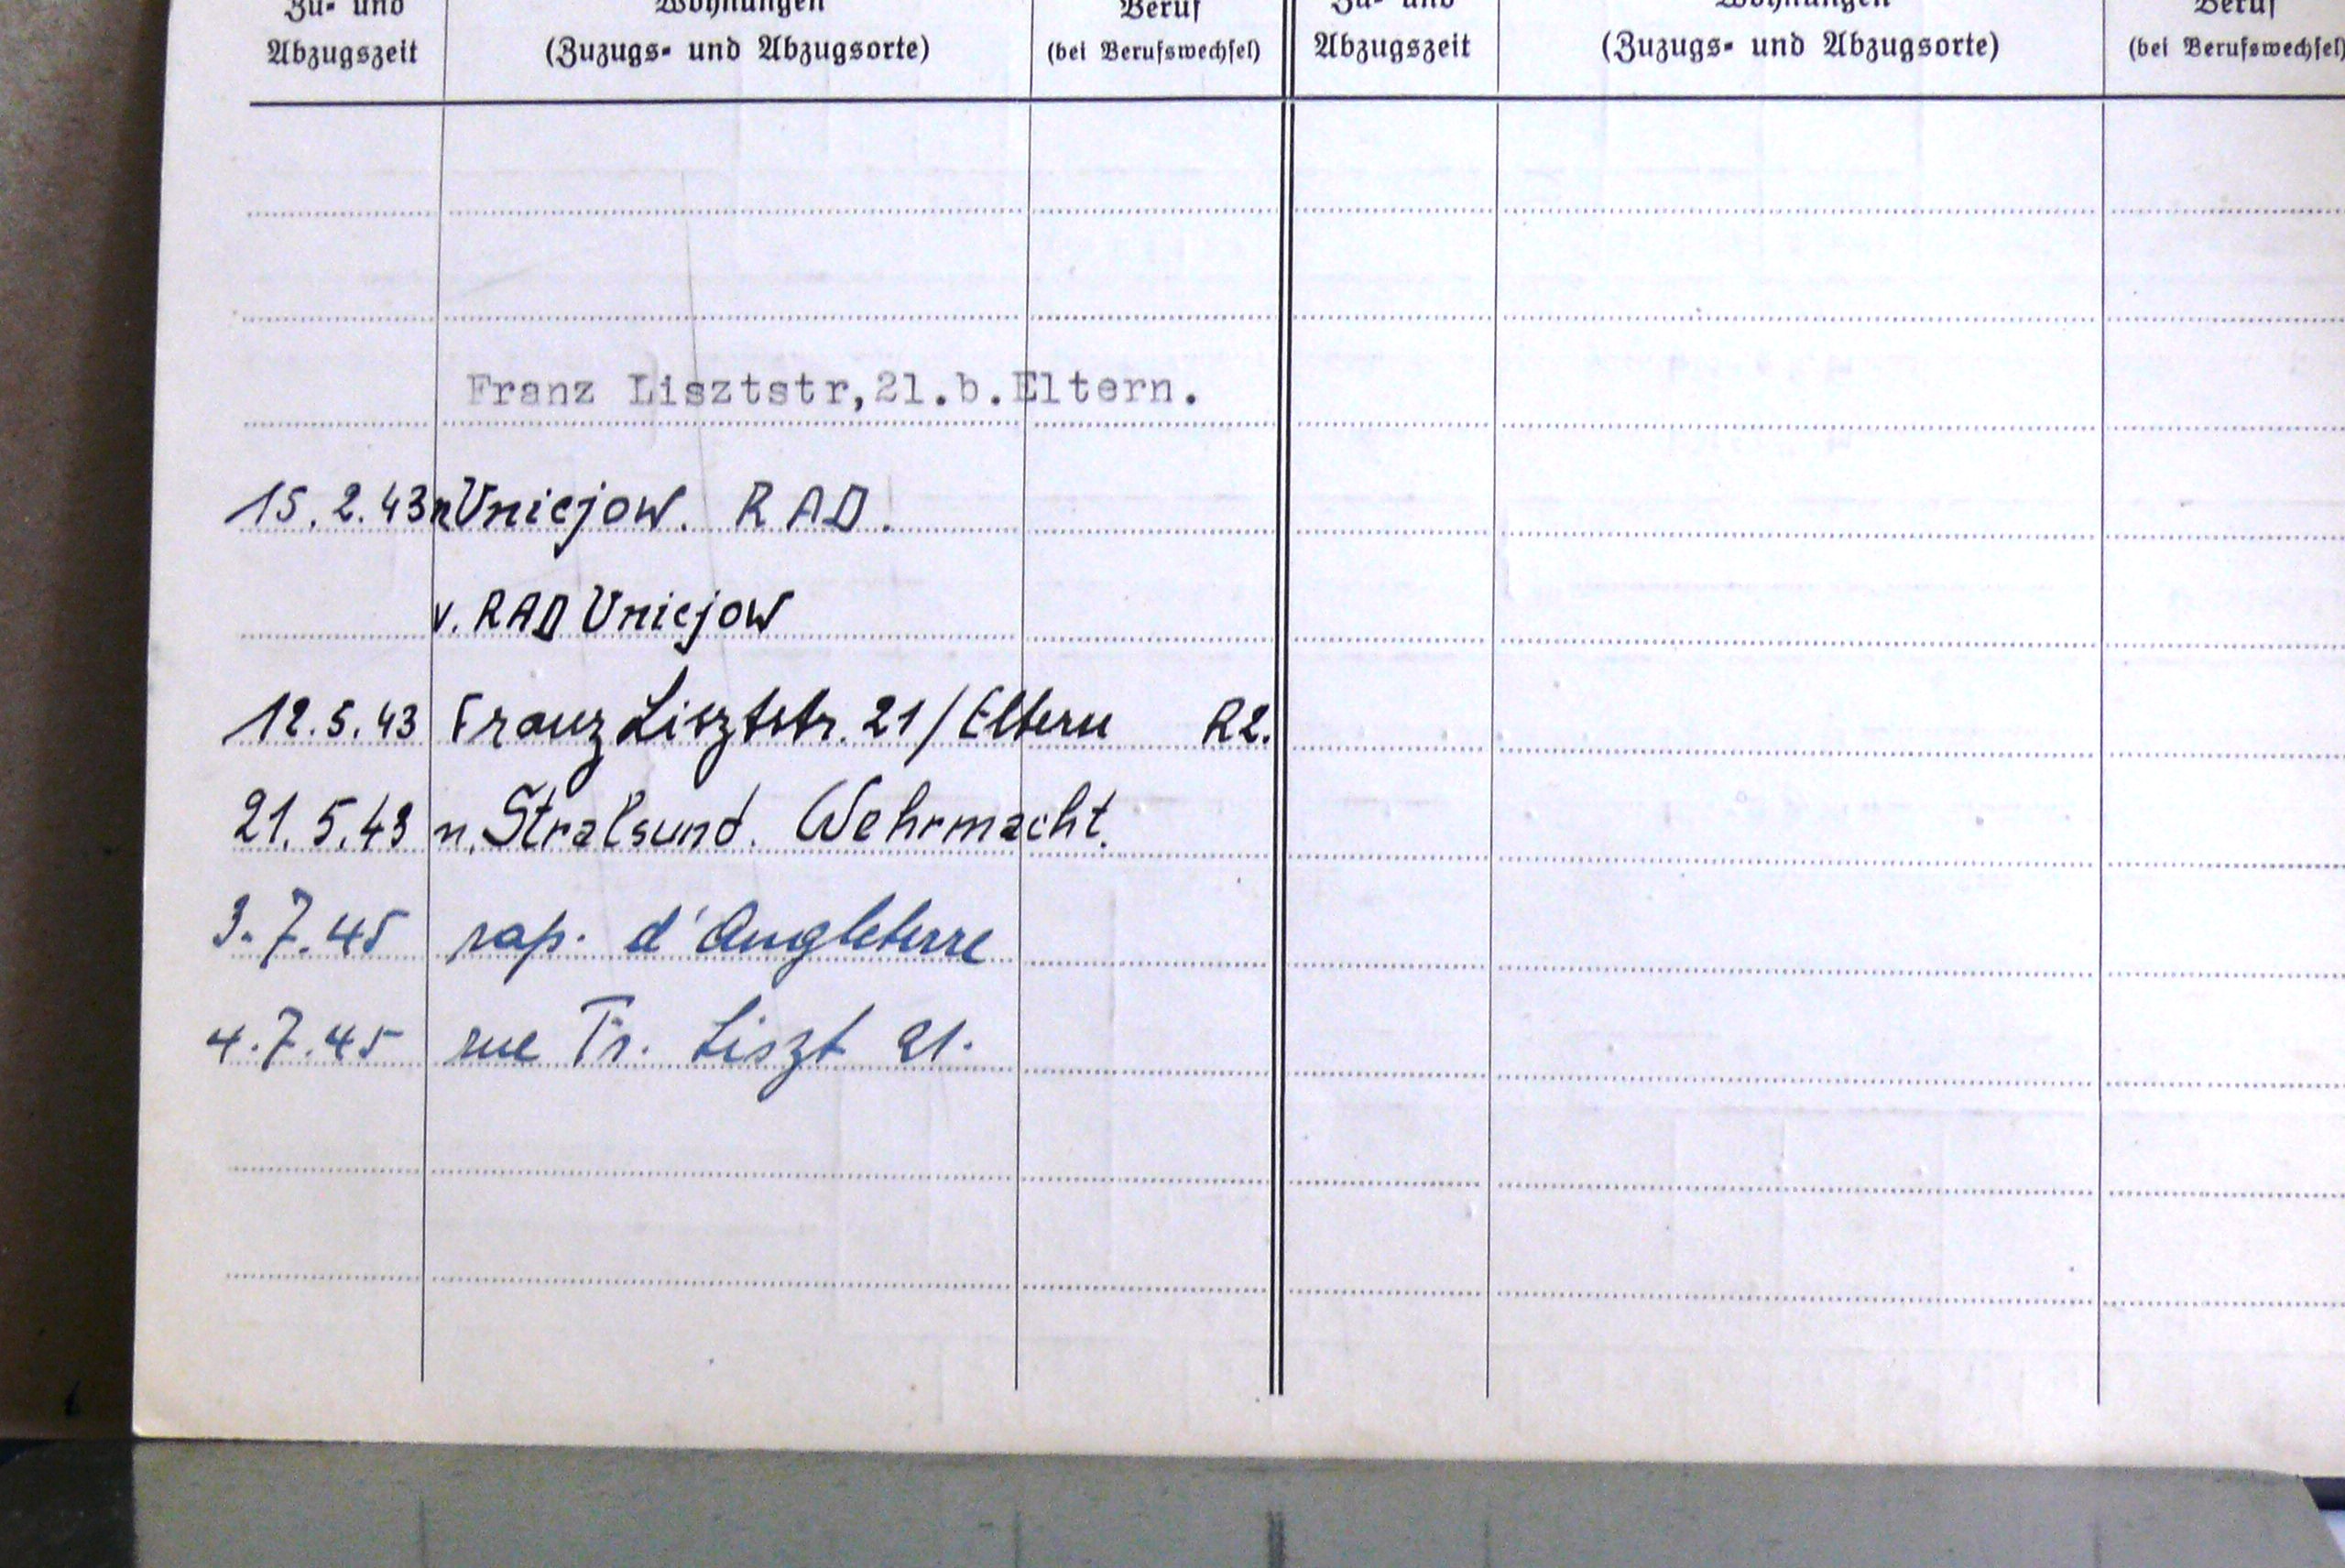 Zu- und Wohnungen Beruf Zu- und Wohnungen Beruf
Abzugszeit (Zuzugs- und Abzugsorte) (bei Berufswechsel) Abzugszeit (Zuzugs- und Abzugsorte) (bei Berufswechsel)
Franz Lisztstr,21.b.Eltern.
15.2.43 n Uniejow. RAD.
v. RAD Uniejow
12.5.43 Franz Lisztstr. 21/Eltern R2.
21.5.43 n. Stralsund. Wehrmacht.
3.7.45 rap. d'Angleterre
4.7.45 rue Fr. Liszt 21.